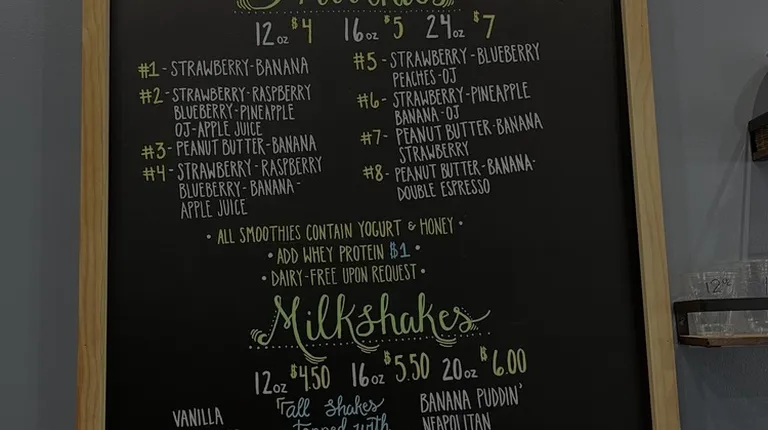 Smoothies
12oz $4 16oz $5 24oz $7
#1 - STRAWBERRY-BANANA
#2 - STRAWBERRY-RASPBERRY
BLUEBERRY-PINEAPPLE
OJ-APPLE JUICE
#3 - PEANUT BUTTER-BANANA
#4 - STRAWBERRY-RASPBERRY
BLUEBERRY-BANANA-
APPLE JUICE
#5 - STRAWBERRY-BLUEBERRY
PEACHES-OJ
#6 - STRAWBERRY-PINEAPPLE
BANANA-OJ
#7 - PEANUT BUTTER-BANANA
STRAWBERRY
#8 - PEANUT BUTTER-BANANA-
DOUBLE ESPRESSO
• ALL SMOOTHIES CONTAIN YOGURT & HONEY •
• ADD WHEY PROTEIN $1 •
• DAIRY-FREE UPON REQUEST •
Milkshakes
12oz $4.50 16oz $5.50 20oz $6.00
VANILLA
all shakes
topped with
BANANA PUDDIN'
NEAPOLITAN
12oz